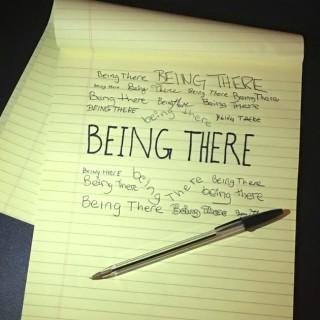 Being There BEING THERE
Being There Being There Being There Being There
Being there Being there Being There
BEING THERE being there Being THERE
BEING THERE
Being HERE being There Being There
Being there being there
Being There Being There Being Th